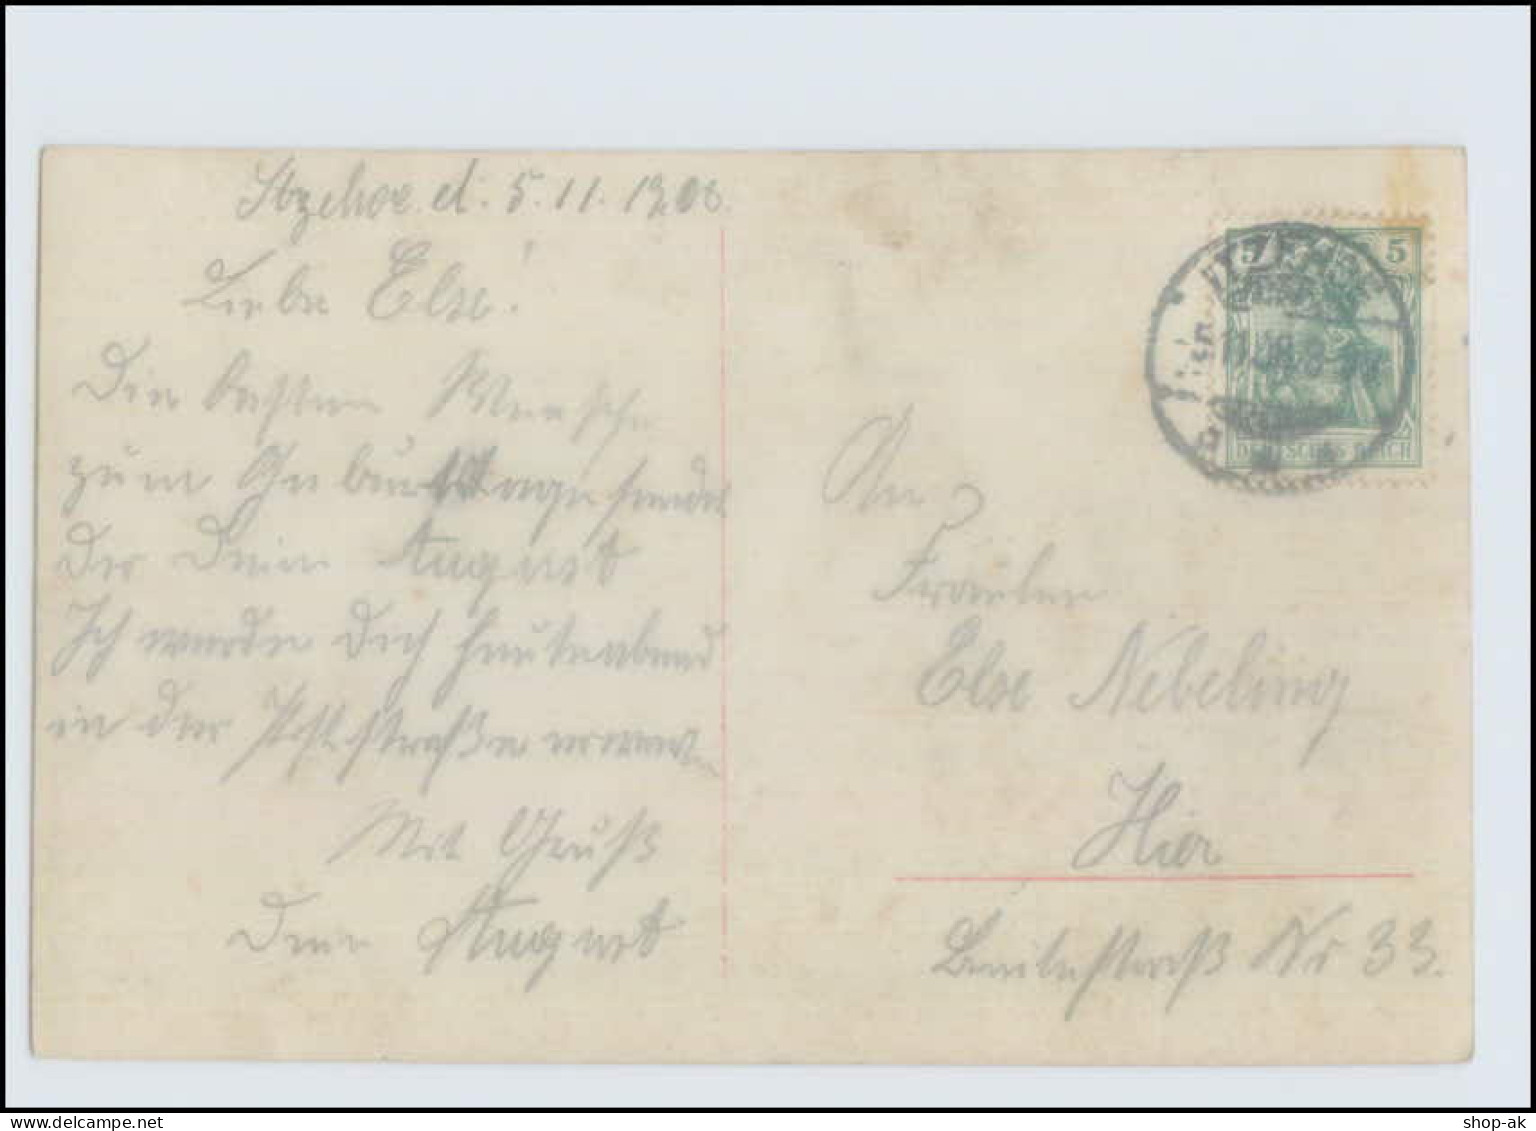 Itzehoe d. 5.11.1908.
Liebe Else!
Die besten Wünsche
zum Geburtstage sendet
Der Deine August
Ich werde Dich heute abend
in der Poststraße erwart
Mit Gruß
Dein August
5 5
DEUTSCHES REICH
An
Fräulein
Else Nebeling
Hier
Breitestraß Nr 33.
shop-ak